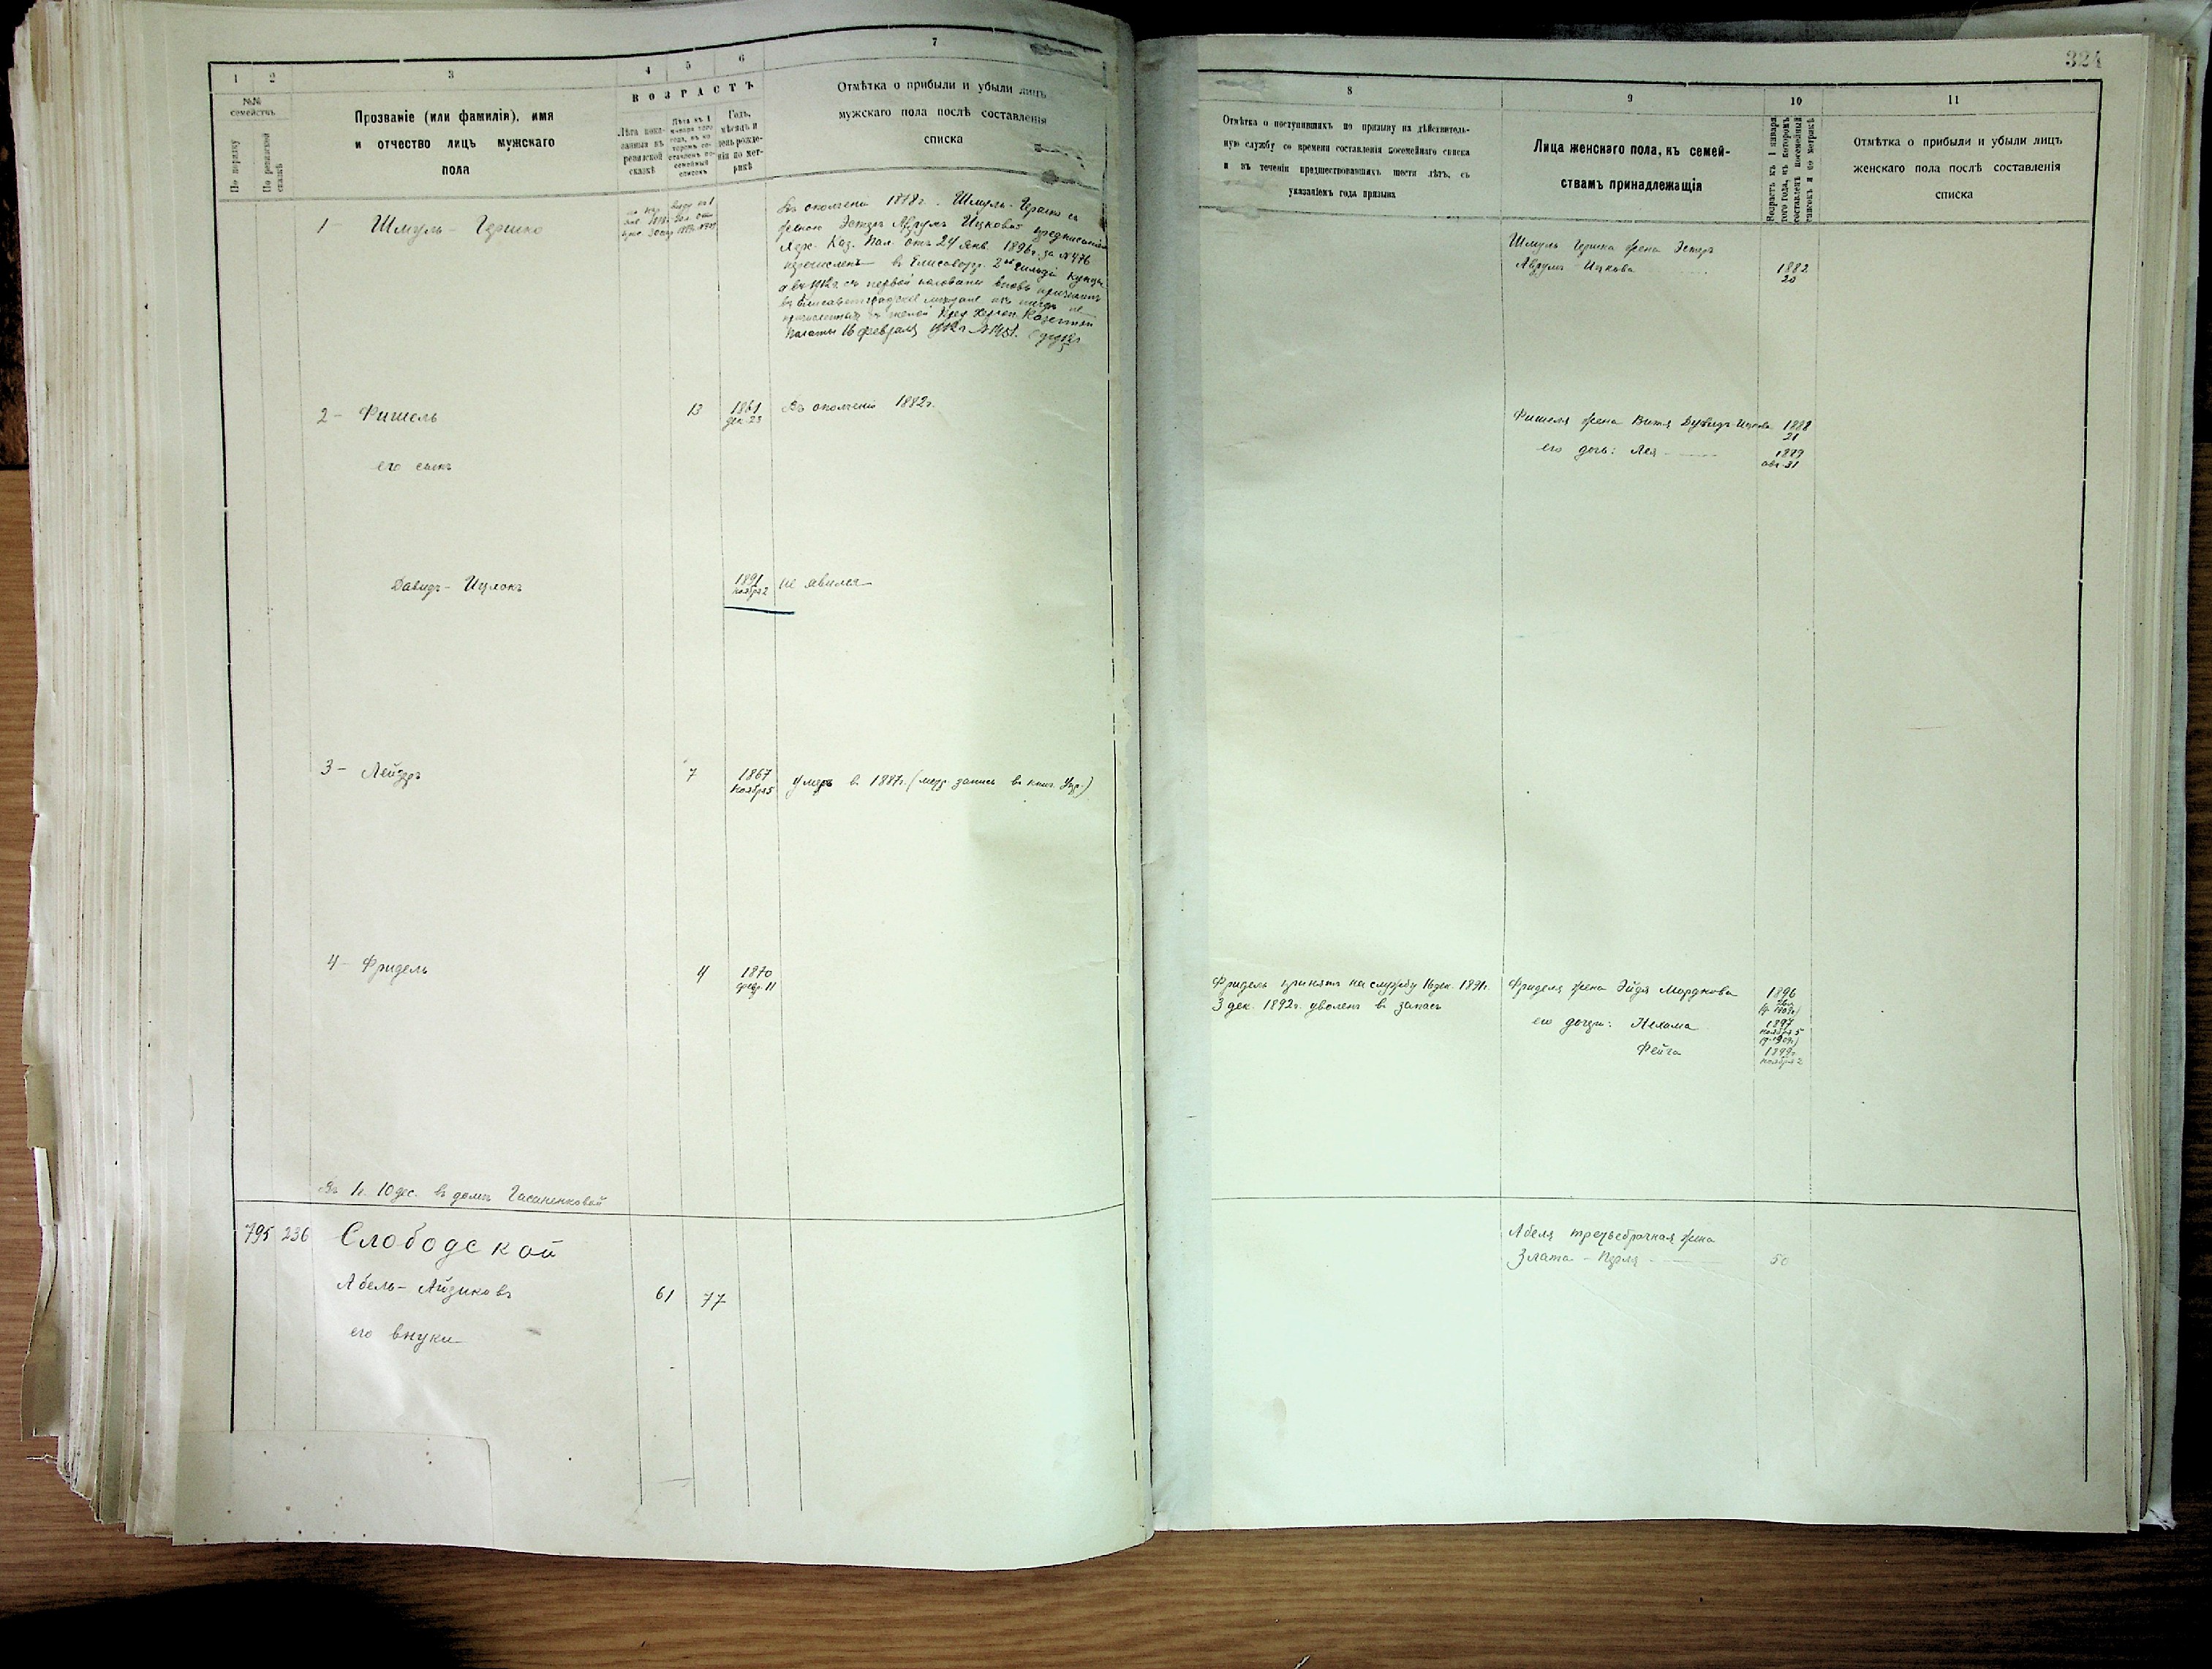 324
1 2 3 4 5 6 7
№№ семействъ
По порядку
По ревизской сказкѣ
Прозваніе (или фамилія), имя
и отчество лицъ мужскаго
пола
ВОЗРАСТЪ
Лѣта пока-
занныя въ
ревизской
сказкѣ
Годъ,
мѣсяцъ и
день рожде-
нія по мет-
рикѣ
Отмѣтка о прибыли и убыли лицъ
мужскаго пола послѣ составленія
списка
1 - Шмуль - Гершко
Въ ополченіи 1878г. Шмуль-Гершко съ
женою Эстеръ Аврумъ Ицковой предписаніемъ
Хер. Каз. Пал. отъ 24 Янв. 1896г. за №476
перечисленъ въ Елисаветгр. 2ой гильдіи купцы
первой половины вновь
въ Елисаветградскіе мѣщане
Казенной
Палаты 16 февраля 1912г.
2 - Фишель 13 1861 дек. 23 Въ ополченіи 1882г.
его сынъ
Давидъ - Ицлокъ 1891 Ноября 2 не явился
3 - Лейзеръ 7 1867 Ноября 5 умеръ въ 1887г. (метр. запись въ книг. Упр.)
4 - Фридель 4 1870 февр. 11
Въ 1г. 10 дес. въ домѣ Гасаненковой
795 236 Слободской
Абель - Айзиковъ 61 77
его внуки
8 9 10 11
Отмѣтка о поступившихъ по призыву на дѣйствитель-
ную службу со времени составленія посемейнаго списка
и въ теченіи предшествовавшихъ шести лѣтъ, съ
указаніемъ года призыва
Лица женскаго пола, къ семей-
ствамъ принадлежащія
Возрастъ къ 1 января
того года, въ которомъ
составленъ посемейный
списокъ и по метрикѣ
Отмѣтка о прибыли и убыли лицъ
женскаго пола послѣ составленія
списка
Шмуль Гершка жена Эстеръ
Аврумъ - Ицкова 1882
20
Фишеля жена Витя Дувидъ-Ицкова 1888
21
его дочь: Лея 1879
авг. 31
Фридель принятъ на службу 16 дек. 1891г.
3 дек. 1892г. уволенъ въ запасъ
Фриделя жена Эйдя Мордкова 1896
его дочери: Нехама 1897
ноября 5
Фейга 1899г
ноября 2
Абеля третьебрачная жена
Злата - Перля 50